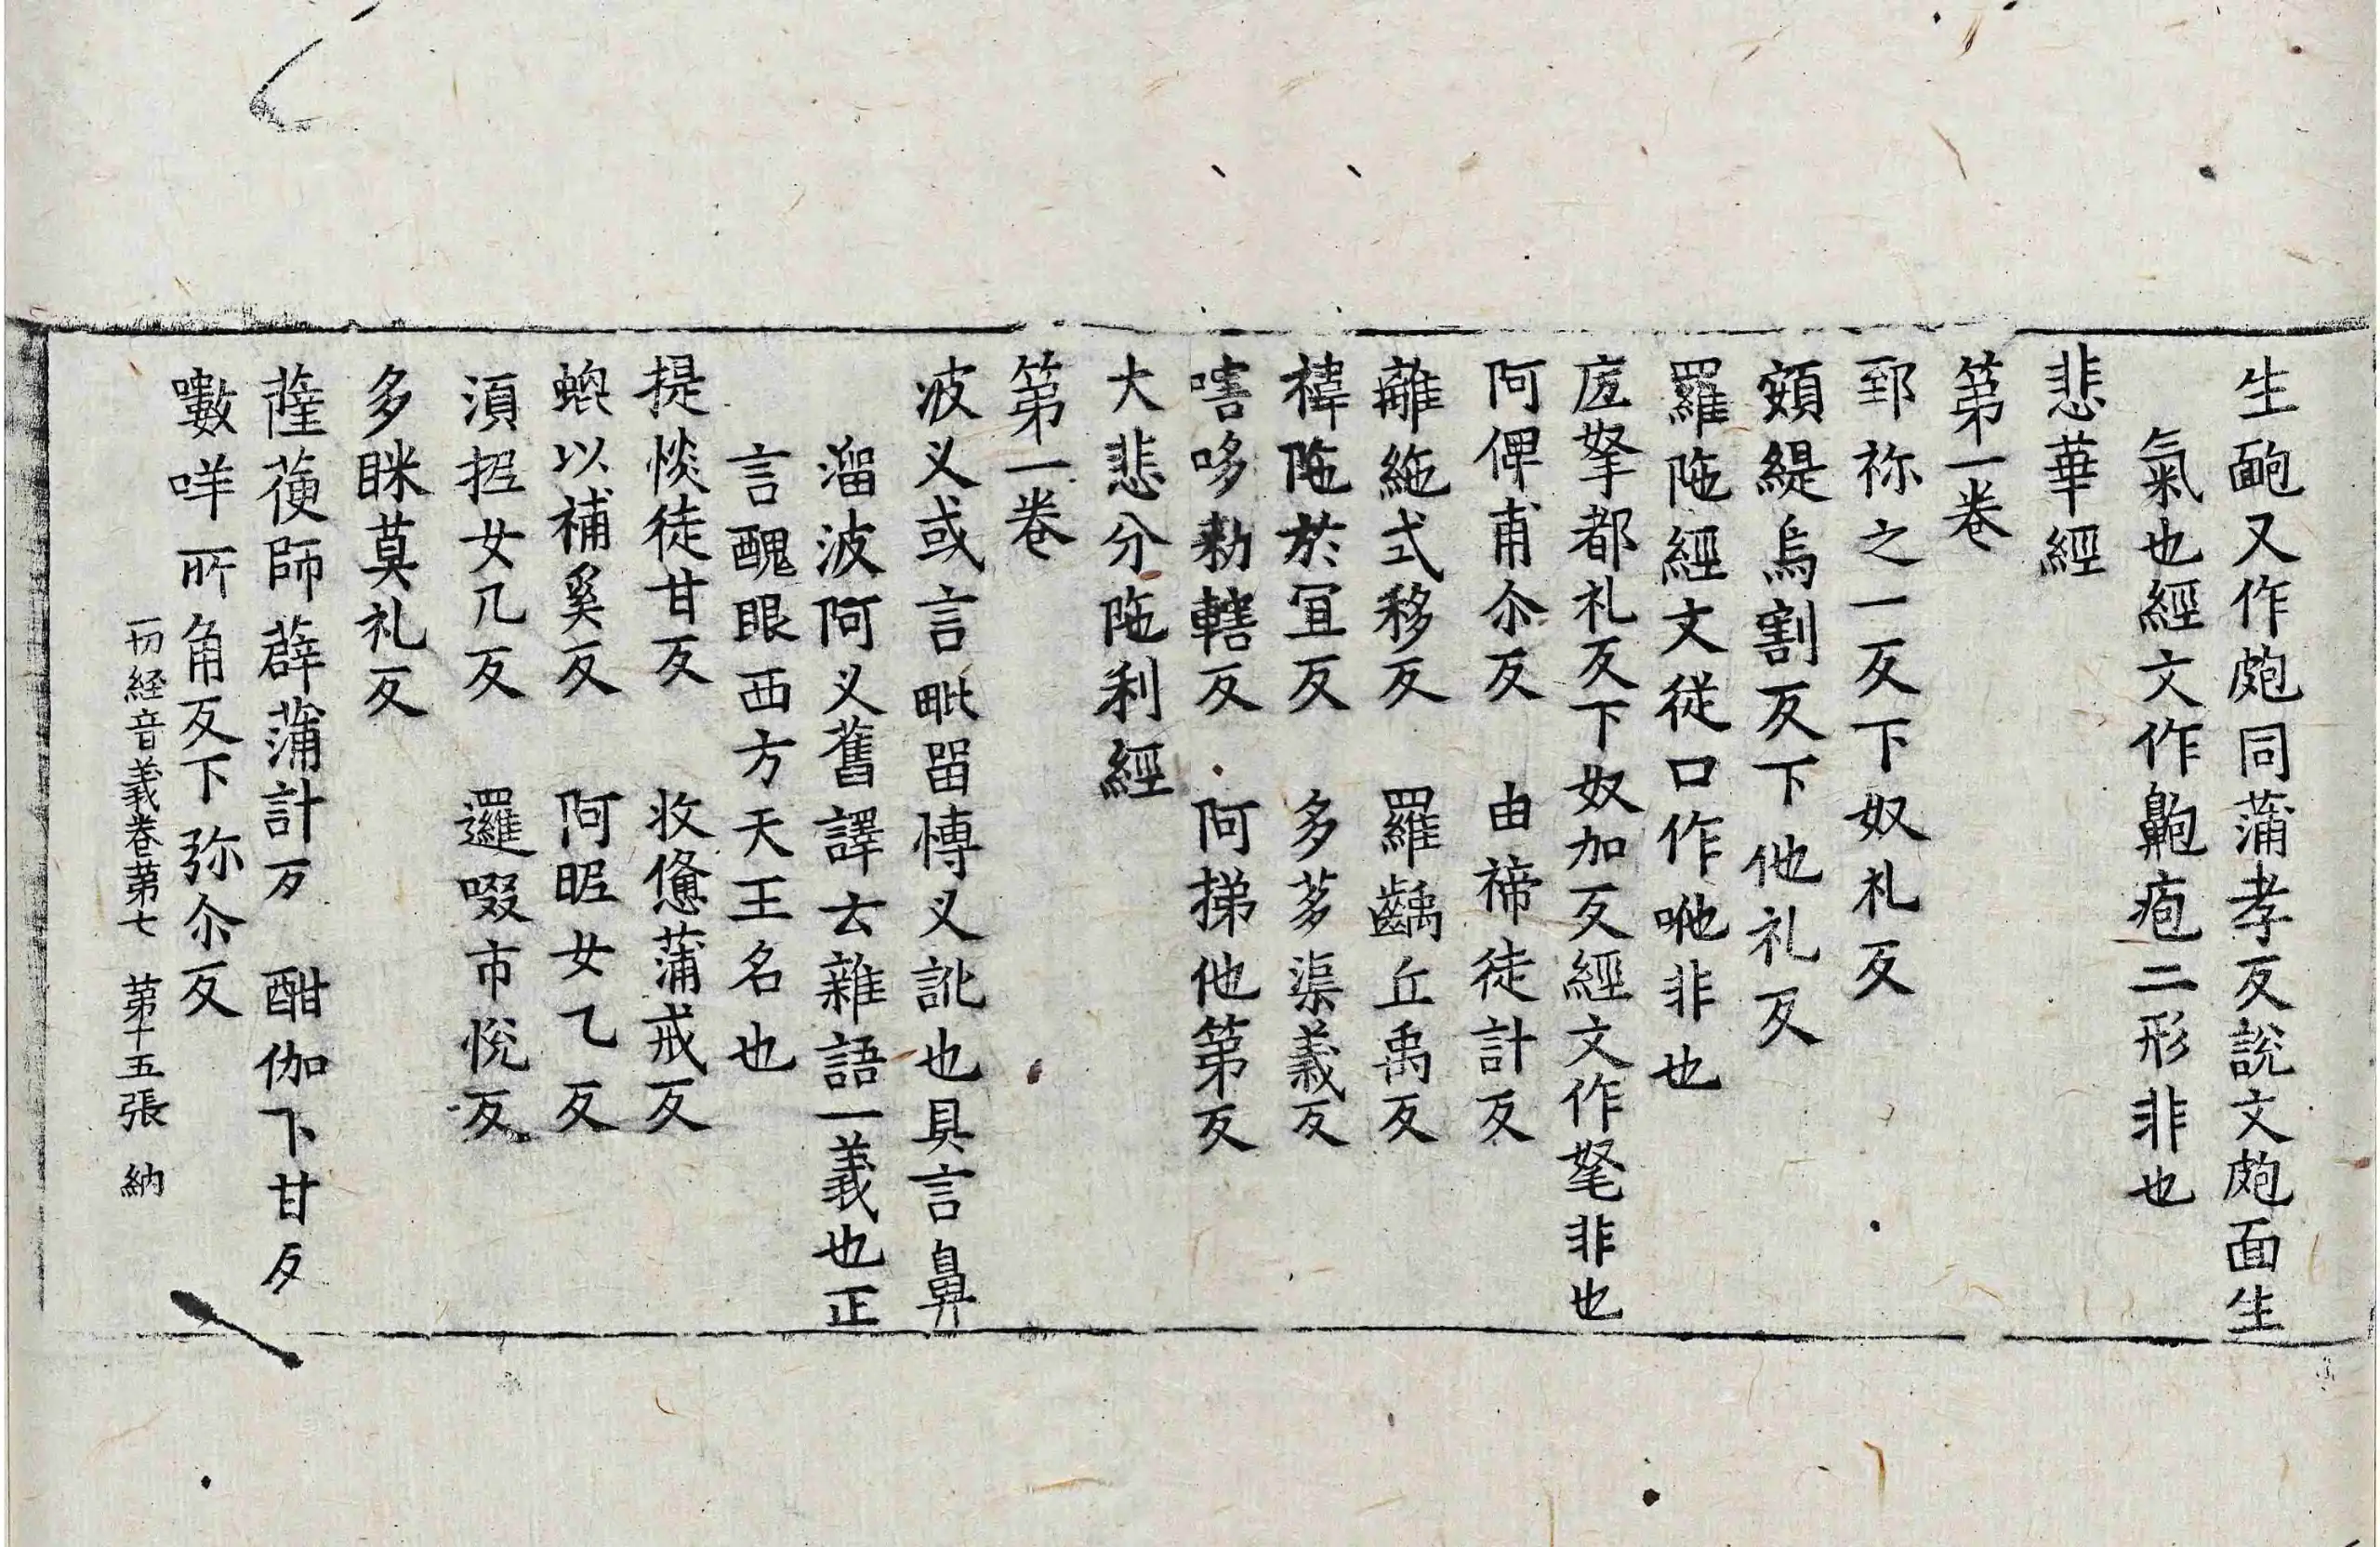 生皰又作皰同蒲孝反說文皰面生
氣也經文作鼥疱二形非也
悲華經
第一卷
郅祢之一反下奴礼反
頞緹烏割反下他礼反
羅陁經文從口作咃非也
底拏都礼反下奴加反經文作毟非也
阿俾甫尒反　由褅徒計反
離絁式移反　羅齲丘禹反
禕陁於冝反　多茤渠義反
嗐哆勑轄反　阿挮他第反
大悲分陁利經
第一卷
波乂或言毗留愽乂訛也具言鼻
溜波阿乂舊譯云雜語一義也正
言醜眼西方天王名也
提惔徒甘反　收憊蒲戒反
蜫以補奚反　阿昵女乙反
湏抳女几反　邏啜市恱反
多眯莫礼反
薩荋師薜蒲計反　酣伽下甘反
嘋咩所角反下弥尒反
一切経音義卷苐七　苐十五張　納